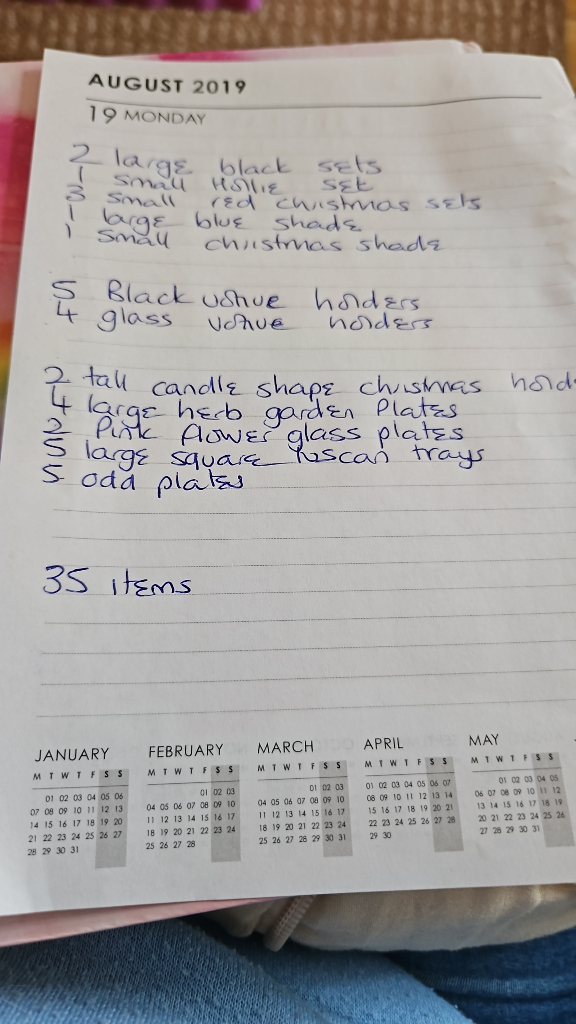 AUGUST 2019
19 MONDAY
2 large black sets
1 small Hollie set
3 small red christmas sets
1 large blue shade
1 small christmas shade
5 Black votive holders
4 glass votive holders
2 tall candle shape christmas hold
4 large herb garden Plates
2 Pink flower glass plates
5 large square tuscan trays
5 odd plates
35 items
JANUARY FEBRUARY MARCH APRIL MAY
M T W T F S S M T W T F S S M T W T F S S M T W T F S S M T W T F S S
01 02 03 04 05 06 01 02 03 01 02 03 01 02 03 04 05 06 07 01 02 03 04 05
07 08 09 10 11 12 13 04 05 06 07 08 09 10 04 05 06 07 08 09 10 08 09 10 11 12 13 14 06 07 08 09 10 11 12
14 15 16 17 18 19 20 11 12 13 14 15 16 17 11 12 13 14 15 16 17 15 16 17 18 19 20 21 13 14 15 16 17 18 19
21 22 23 24 25 26 27 18 19 20 21 22 23 24 18 19 20 21 22 23 24 22 23 24 25 26 27 28 20 21 22 23 24 25 26
28 29 30 31 25 26 27 28 25 26 27 28 29 30 31 29 30 27 28 29 30 31